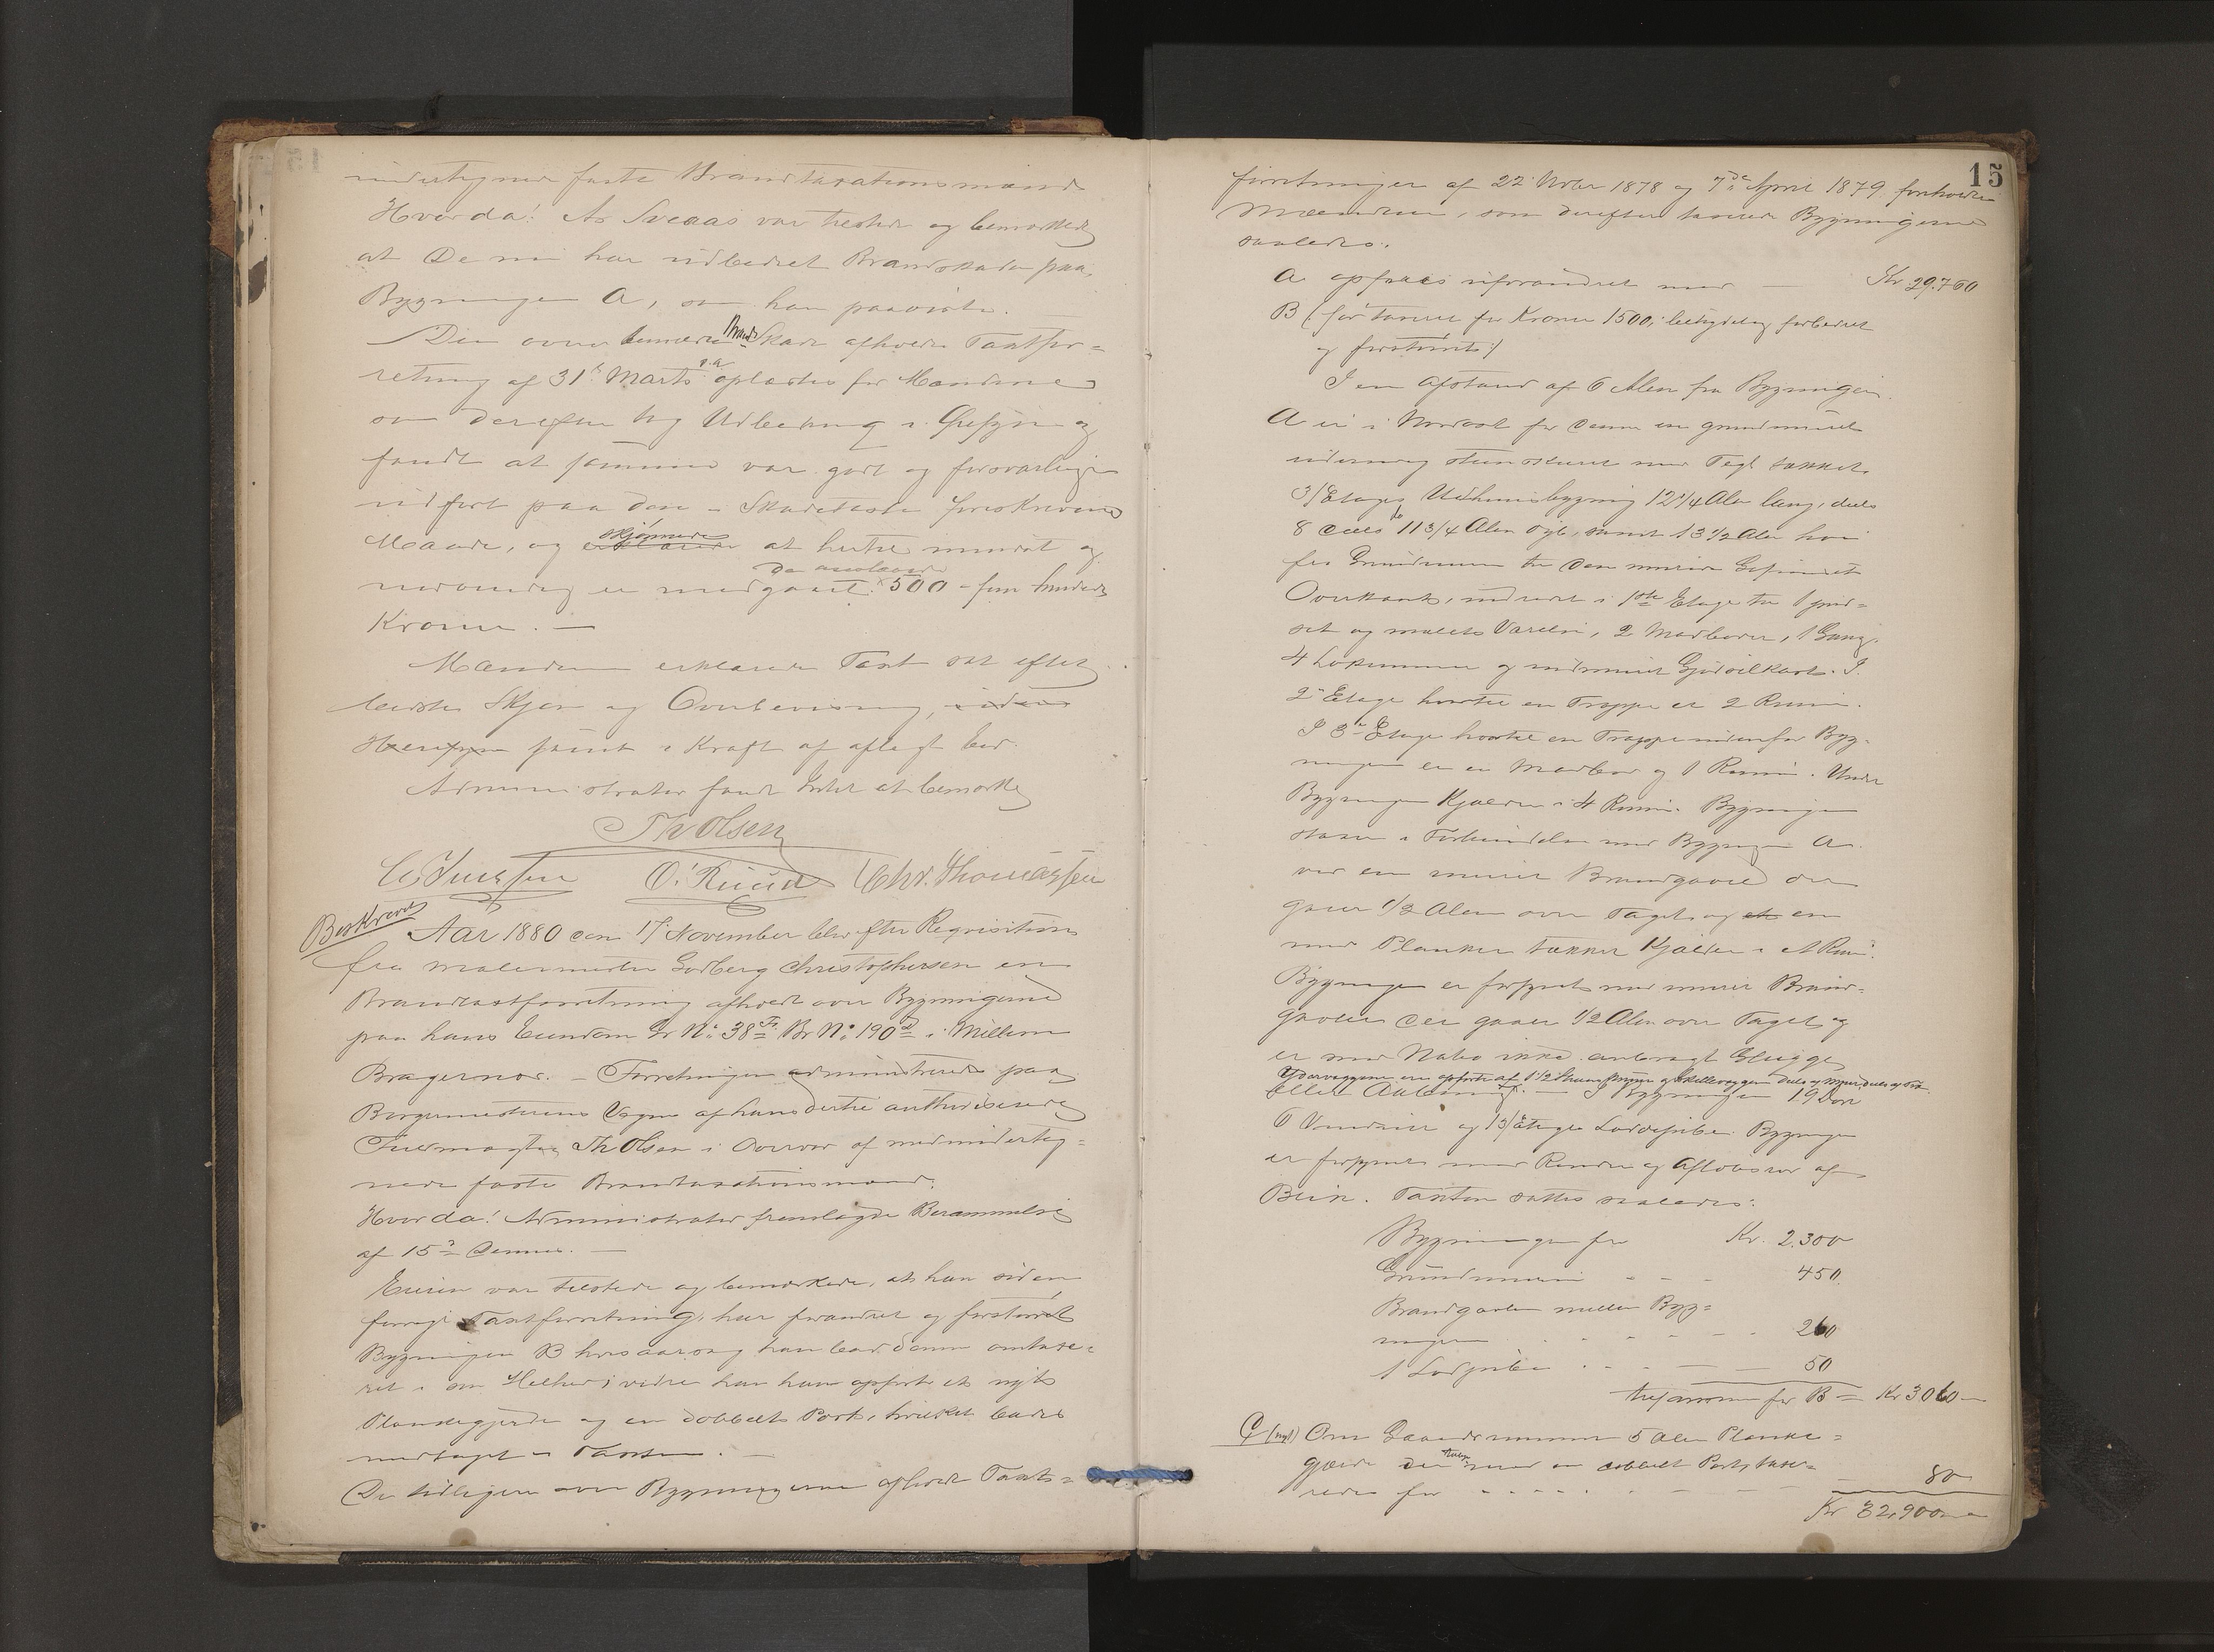 undertegnede faste Brandtaxationsmænd
Hvorda! As Sveaas var tilstede og bemærkede
at De nu har udbedret Brandskaden paa
Bygningen A, som han paaviste.
Den over bemeldte Brand Skade afholdte Taxtfor=
retning af 31te Marts d.A. oplæstes for Mændene
som derefter tog Udbedring i Øiesyn og
fandt at samme var godt og forsvarligen
udført paa den i Skadetaxten foreskrevne
Maade, og skjønnede at hertil mindst og
nødvendig er medgaaet de ansloede 500 - fem hundrede
Kroner. —
Mændene erklærede Taxt sat efter
bedste Skjøn og Overbevisning,
samt i Kraft af aflagt Eed.
Administrator fandt Intet at bemærke
Th Olsen
C. Iversen O. Ruud Chr. Thomassen
Beskrevet
Aar 1880 den 17 November blev efter Requisition
fra Malermester Godberg Christophersen en
Brandtaxtforretning afholdt over Bygningerne
paa hans Eiendom Gr No. 38 Fr. Br No. 190 d i Mellem
Bragernes. — Forretningen administreredes paa
Borgermesterens Vegne af hans dertil authoriserede
Fuldmægtig Th Olsen i Overvær af medunderteg=
nede faste Brandtaxationsmænd.
Hvorda! Administrator fremlagde Berammelse
af 15de Dennes. —
Eieren var tilstede og bemærkede, at han siden
forrige Taxtforretning har forandret og forstørret
Bygningen B hvisaarsag han bad denne omtaxe=
ret i sin Helhed; videre har han opført et nyt
Plankegjerde og en dobbelt Port, hvilket bades
medtaget i Taxten. —
De tidligere over Bygningerne afholdte Taxt=
15
forretninger af 22 Novbr 1878 og 7de April 1879 foreholdtes
Mændene, som derefter taxerede Bygningerne
saaledes:
A opføres uforandret med — Kr 29.760
B (før taxeret for Kroner 1500, betydelig forbedret
og forstørret)
I en Afstand af 6 Alen fra Bygningen
A er i Nordost for denne en grundmuret
udvendig stenskuret med Tegl tækket
3/Etages Udhuusbygning 12 1/4 Alen lang, deels
8 deels 11 3/4 Alen dyb, samt 13 1/2 Alen høi
fra Grundmuren til den murede Gesimsets
Overkant, indredet i 1ste Etage til 1 pud=
set og malet Værelse, 2 Madboder, 1 Gang,
4 Lokummer og indmuret Gjødselkast. I
2den Etage hvortil en Trappe er 2 Rum.
I 3die Etage hvortil en Trappe udenfor Byg=
ningen er en Madbod og 1 Rum. Under
Bygningen Kjælder i 4 Rum. Bygningen
staar i Forbindelse med Bygningen A
ved en muret Brandgavl der
gaaer 1/2 Alen over Taget og en
med Planker tækket Kjælder i et Rum.
Bygningen er forsynet med murede Brand=
gavle der gaaer 1/2 Alen over Taget og
er mod Nabo ikke anbragt Glugge
Ydervæggene ere opførte af 1 1/2 Steens Muur og Skillevæggene deels af Muur deels af Træ
eller Aabning. — I Bygningen 19 Døre
6 Vinduer og 1 3/Etages Luddepibe. Bygningen
er forsynet med Render og Afløbsrør af
Blik. Taxten sattes saaledes:
Bygningen for Kr. 2.300
Grundmuren - - - 450.
Brandgavlen mellem Byg=
ningerne - - - - 260
1 Ludpibe - - - — — 50
tilsammen for B — Kr 3060 —
C (nyt) Om Gaardsrummet 5 Alen Planke=
gjerde med en dobbelt Port, taxe=
redes for - - - - - — 80
Kr 32.900 —